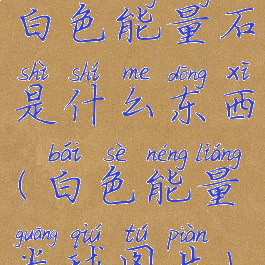 白色能量石
shì shí me dōng xī
是什么东西
bái sè néng liáng
(白色能量
guāng qiú tú piàn
光球图片)